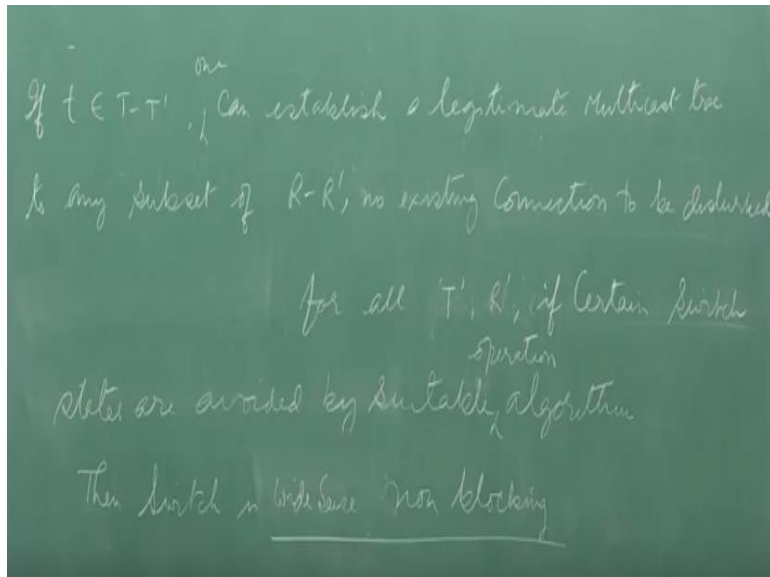 one
If t ∈ T-T', Can establish a legitimate Multicast tree
to any subset of R-R', no existing Connection to be disturbed
for all T', R', if Certain Switch
operation
states are avoided by Suitable algorithm
Then Switch is Wide Sense Non blocking